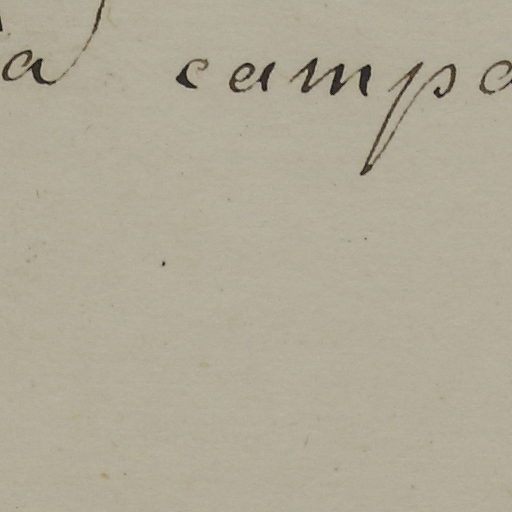 a campa